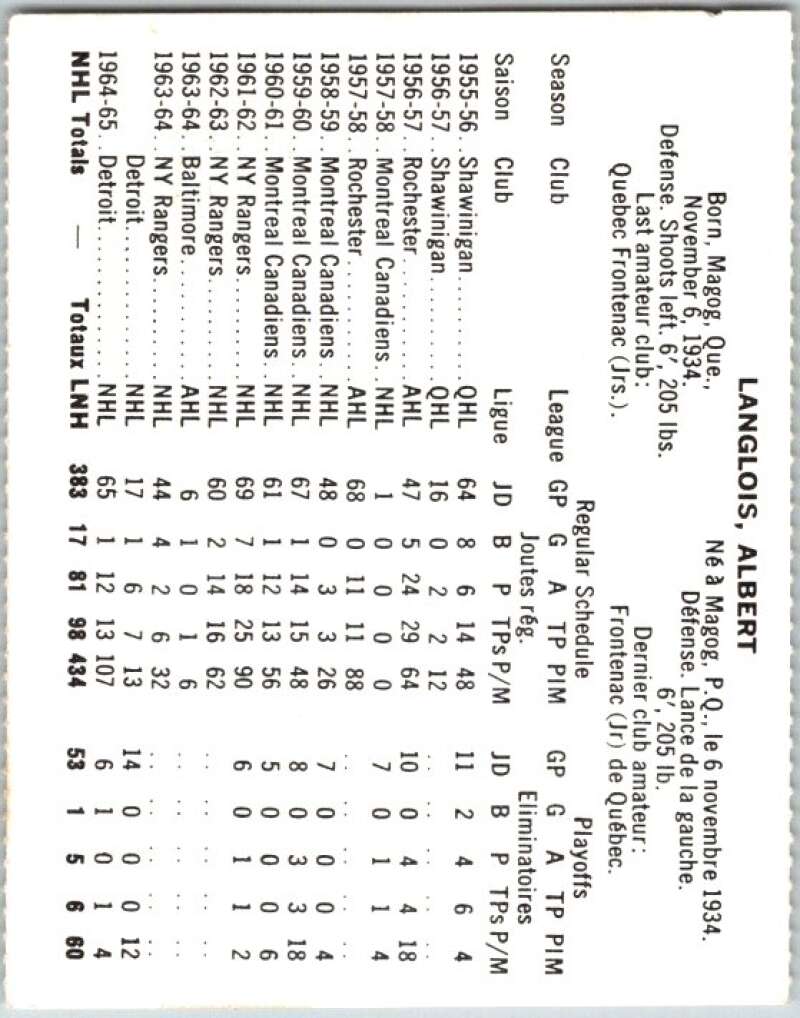 LANGLOIS, ALBERT
Born, Magog, Que.,
November 6, 1934.
Defense. Shoots left. 6', 205 lbs.
Last amateur club:
Quebec Frontenac (Jrs.).
Né à Magog, P.Q., le 6 novembre 1934.
Défense. Lance de la gauche.
6', 205 lb.
Dernier club amateur:
Frontenac (Jr) de Québec.
Regular Schedule Playoffs
Season Club League GP G A TP PIM GP G A TP PIM
Joutes rég. Eliminatoires
Saison Club Ligue JD B P TPs P/M JD B P TPs P/M
1955-56.. Shawinigan.......... QHL 64 8 6 14 48 11 2 4 6 4
1956-57.. Shawinigan.......... QHL 16 0 2 2 12 .. .. .. .. ..
1956-57.. Rochester........... AHL 47 5 24 29 64 10 0 4 4 18
1957-58.. Montreal Canadiens.. NHL 1 0 0 0 0 7 0 1 1 4
1957-58.. Rochester........... AHL 68 0 11 11 88 .. .. .. .. ..
1958-59.. Montreal Canadiens.. NHL 48 0 3 3 26 7 0 0 0 4
1959-60.. Montreal Canadiens.. NHL 67 1 14 15 48 8 0 3 3 18
1960-61.. Montreal Canadiens.. NHL 61 1 12 13 56 5 0 0 0 6
1961-62.. NY Rangers.......... NHL 69 7 18 25 90 6 0 1 1 2
1962-63.. NY Rangers.......... NHL 60 2 14 16 62 .. .. .. .. ..
1963-64.. Baltimore........... AHL 6 1 0 1 6 .. .. .. .. ..
1963-64.. NY Rangers.......... NHL 44 4 2 6 32 .. .. .. .. ..
Detroit............. NHL 17 1 6 7 13 14 0 0 0 12
1964-65.. Detroit............. NHL 65 1 12 13 107 6 1 0 1 4
NHL Totals — Totaux LNH 383 17 81 98 434 53 1 5 6 60